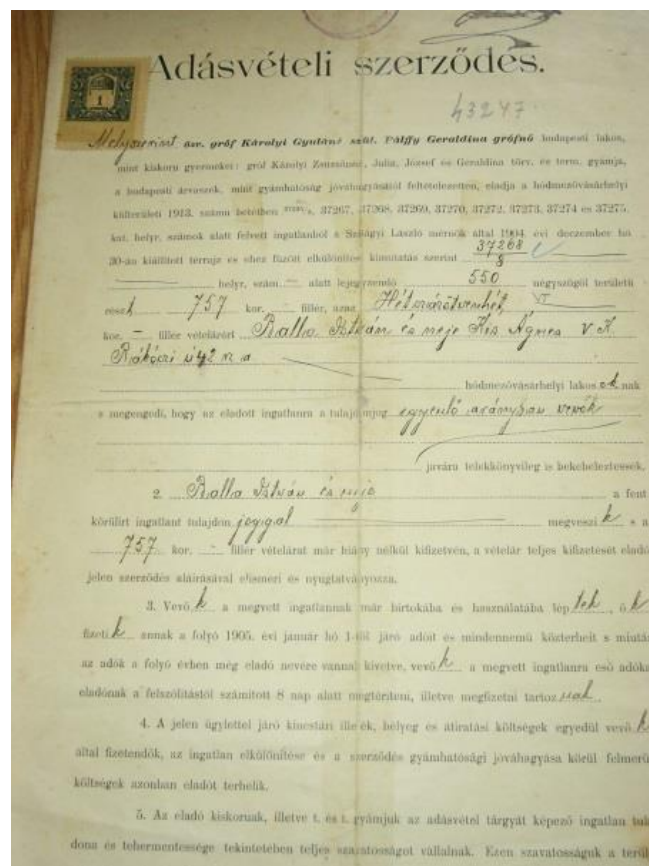 Adásvételi szerződés.
1
43247
Melyszerint özv. gróf Károlyi Gyuláné szül. Pálffy Geraldina grófnő budapesti lakos,
mint kiskoru gyermekei: gróf Károlyi Zsuzsánna, Julia, József és Geraldina törv. és term. gyámja,
a budapesti árvaszék, mint gyámhatóság jóváhagyásától feltételezetten, eladja a hódmezővásárhelyi
külterületi 1913. számu betétben 37267, 37268, 37269, 37270, 37272, 37273, 37274 és 37275.
kat. helyr. számok alatt felvett ingatlanból a Szilágyi László mérnök által 1904. évi deczember hó
30-án kiállított térrajz és ehez füzött elkülönítési kimutatás szerint 37268
8
helyr. szám. alatt lejegyzendő 550 négyszögöl területü
részt 757 kor. – fillér, azaz Hétszázötvenhét
kor. – fillér vételárért Balla István és neje Kis Ágnes V. K.
Rákóczi u 42 n a
hódmezővásárhelyi lakosoknak
s megengedi, hogy az eladott ingatlanra a tulajdonjog egyenlő arányban vevők
javára telekkönyvileg is bekebeleztessék.
2. Balla István és neje a fent
körülirt ingatlant tulajdon joggal megveszik s a
757 kor. – fillér vételárat már hiány nélkül kifizetvén, a vételár teljes kifizetését eladó
jelen szerződés aláirásával elismeri és nyugtatványozza.
3. Vevők a megvett ingatlannak már birtokába és használatába léptek, ők
fizetik annak a folyó 1905. évi január hó 1-től járó adóit és mindennemü közterheit s miutá
az adók a folyó évben még eladó nevére vannak kivetve, vevők a megvett ingatlanra eső adóka
eladónak a felszólitástól számitott 8 nap alatt megtéríteni, illetve megfizetni tartoznak.
4. A jelen ügylettel járó kincstári illeték, bélyeg és átiratási költségek egyedül vevők
által fizetendők, az ingatlan elkülönitése és a szerződés gyámhatósági jóváhagyása körül felmerü
költségek azonban eladót terhelik.
5. Az eladó kiskoruak, illetve t. és t. gyámjuk az adásvétel tárgyát képező ingatlan tulaj
dona és tehermentessége tekintetében teljes szavatosságot vállalnak. Ezen szavatosságuk a terül